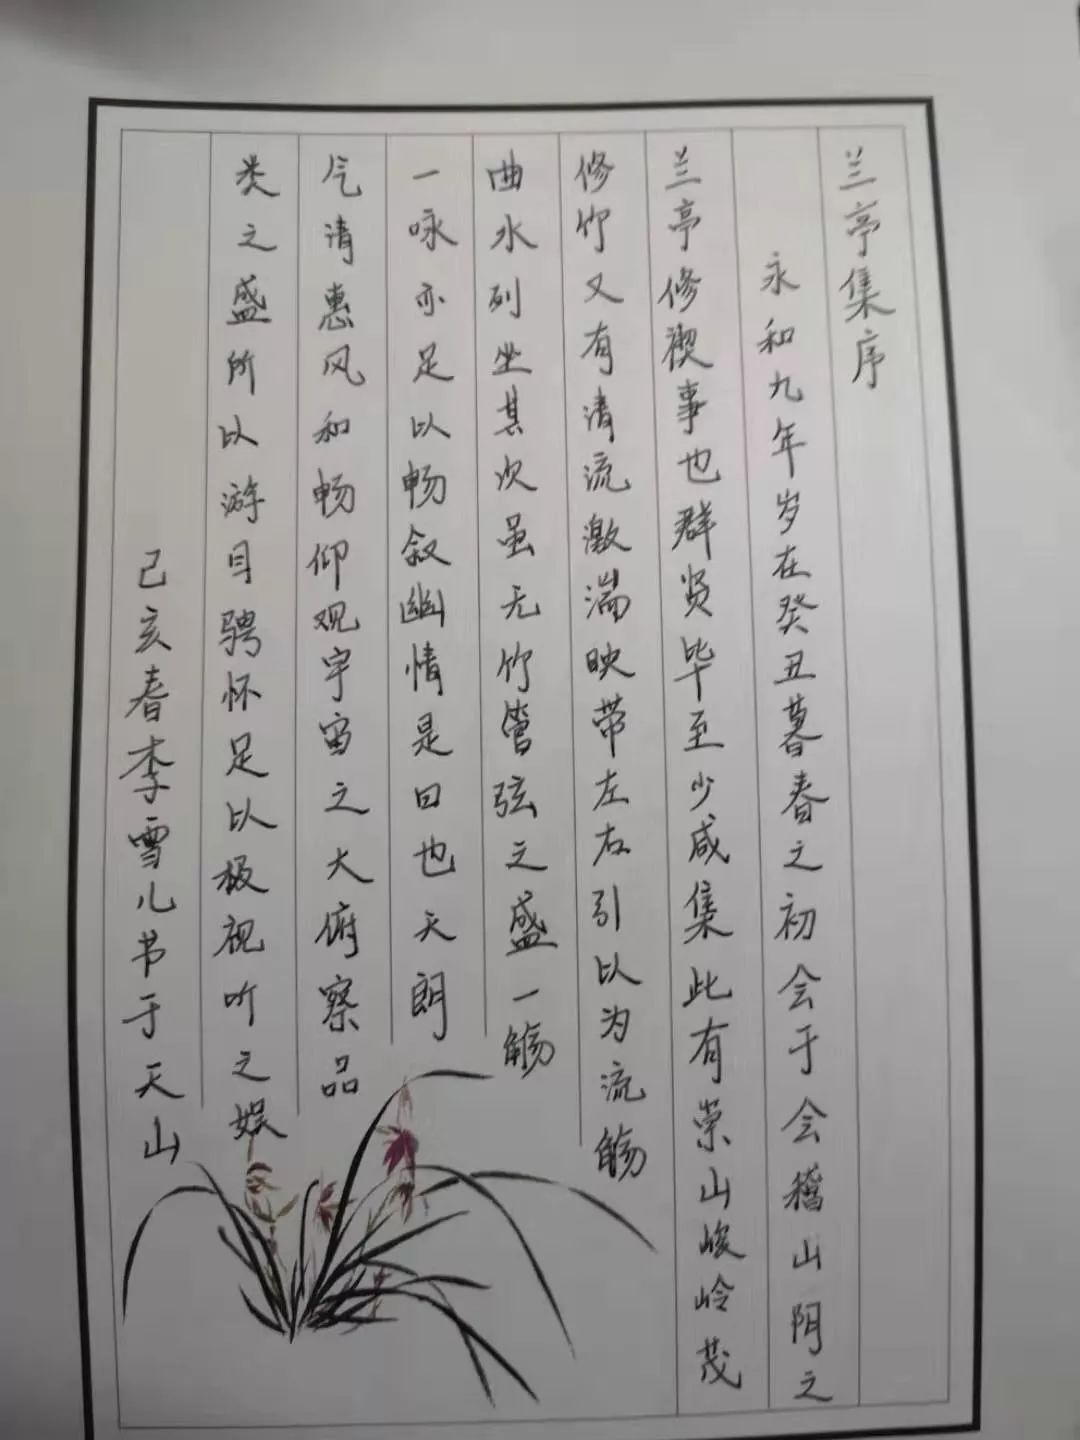 兰亭集序
永和九年岁在癸丑暮春之初会于会稽山阴之
兰亭修禊事也群贤毕至少咸集此有崇山峻岭茂
修竹又有清流激湍映带左右引以为流觞
曲水列坐其次虽无竹管弦之盛一觞
一咏亦足以畅叙幽情是日也天朗
气清惠风和畅仰观宇宙之大俯察品
类之盛所以游目骋怀足以极视听之娱
己亥春李雪儿书于天山